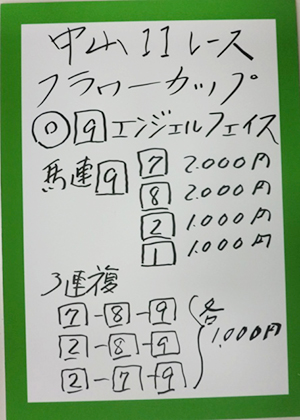 中山11レース
フラワーカップ
◎ 9 エンジェルフェイス
馬連 9 7 2.000円
8 2.000円
2 1.000円
1 1.000円
3連複
7-8-9
2-8-9 各1.000円
2-7-9